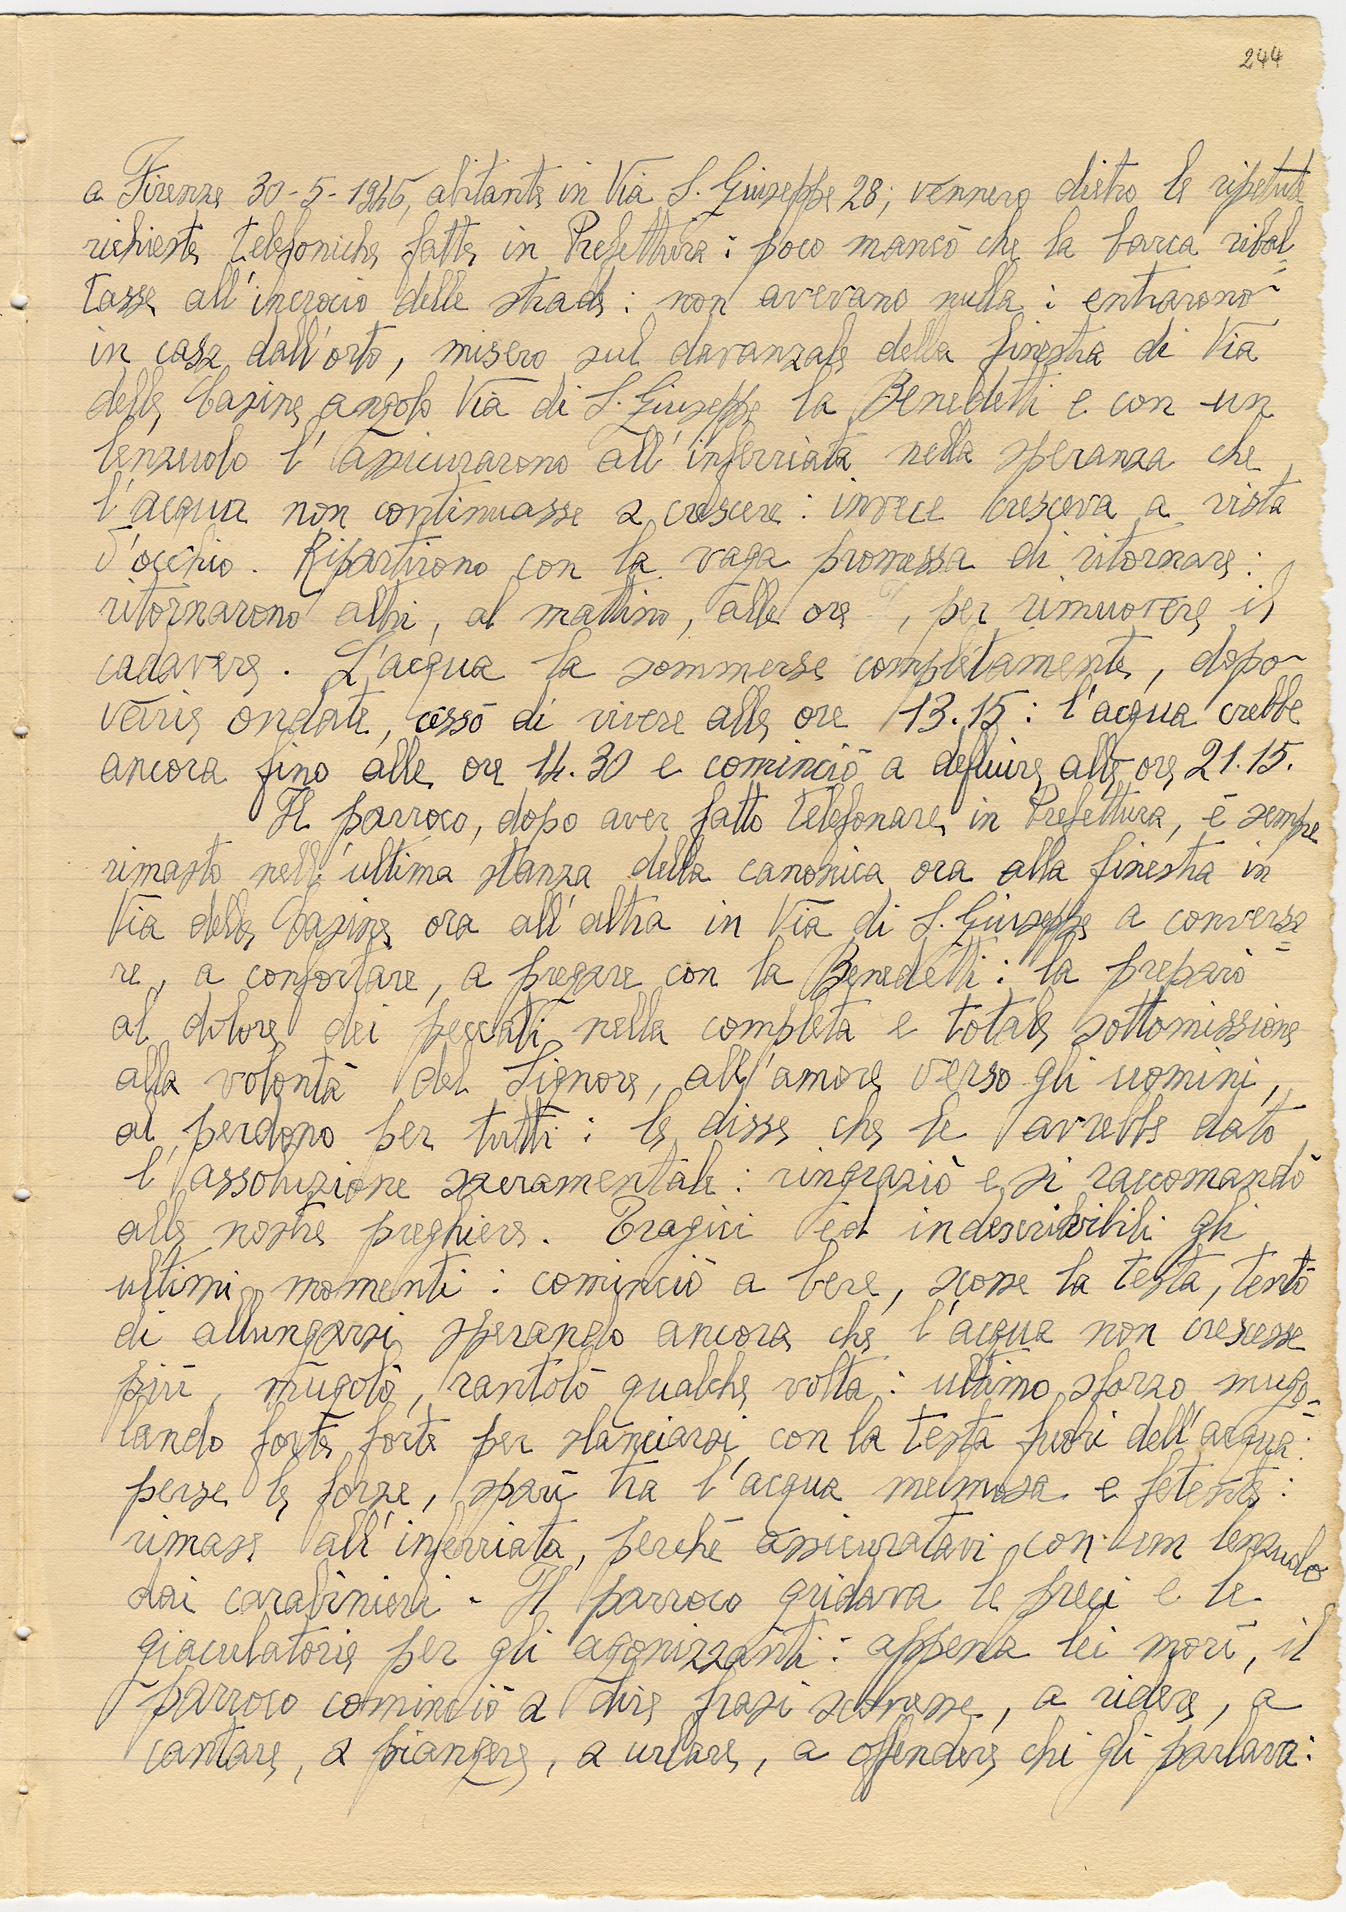 244
a Firenze 30-5-1946, abitante in Via S. Giuseppe 28; vennero dietro le ripetute
richieste telefoniche fatte in Prefettura: poco mancò che la barca ribal=
tasse all'incrocio delle strade: non avevano nulla: entrarono
in casa dall'orto, misero sul davanzale della finestra di Via
delle Casine angolo Via di S. Giuseppe la Benedetti e con un
lenzuolo l'assicurarono all'inferriata nella speranza che
l'acqua non continuasse a crescere: invece cresceva a vista
d'occhio. Ripartirono con la vaga promessa di ritornare:
ritornarono altri, al mattino, alle ore , per rimuovere il
cadavere. L'acqua la sommerse completamente, dopo
varie ondate, cessò di vivere alle ore 13.15: l'acqua crebbe
ancora fino alle ore 14.30 e cominciò a defluire alle ore 21.15.
Il parroco, dopo aver fatto telefonare in Prefettura, è sempre
rimasto nell'ultima stanza della canonica ora alla finestra in
Via delle Casine ora all'altra in Via di S. Giuseppe a conversa=
re, a confortare, a pregare con la Benedetti: la preparò
al dolore dei peccati nella completa e totale sottomissione
alla volontà del Signore, all'amore verso gli uomini,
al perdono per tutti: le disse che le avrebbe dato
l'assoluzione sacramentale: ringraziò e si raccomandò
alle nostre preghiere. Tragici ed indescrivibili gli
ultimi momenti: cominciò a bere, scosse la testa, tentò
di allungarsi sperando ancora che l'acqua non crescesse
più, mugolò, rantolò qualche volta: ultimo sforzo mugo=
lando forte forte per slanciarsi con la testa fuori dell'acqua:
perse le forze, sparì tra l'acqua melmosa e fetente:
rimase all'inferriata, perchè assicuratavi con un lenzuolo
dai carabinieri. Il parroco gridava le preci e le
giaculatorie per gli agonizzanti: appena lei morì, il
parroco cominciò a dire frasi sconnesse, a ridere, a
cantare, a piangere, a urlare, a offendere chi gli parlava: